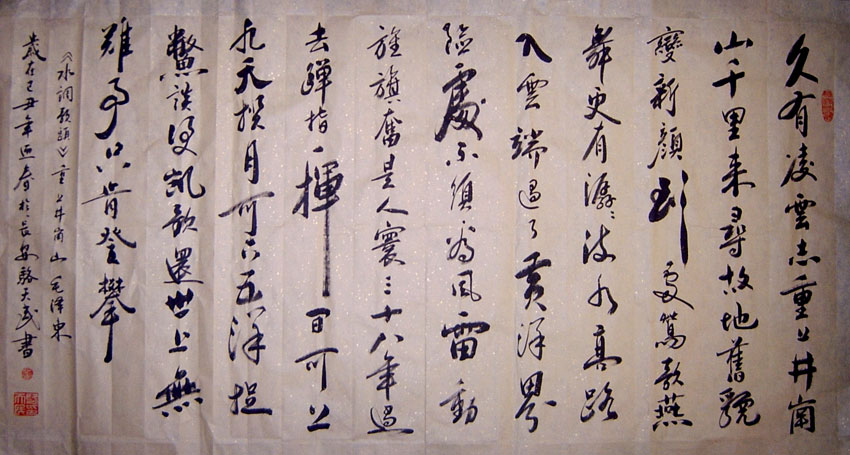 久有凌雲志重上井崗
山千里来尋故地舊貌
變新顏到處鶯歌燕
舞更有潺〻流水高路
入雲端過了黃洋界
險處不須看風雷動
旌旗奮是人寰三十八年過
去彈指一揮間可上
九天攬月可下五洋捉
鱉談笑凱歌還世上無
難事只肯登攀
《水調歌頭》重上井崗山 毛澤東
歲在己丑年迎春於長安駱天成書